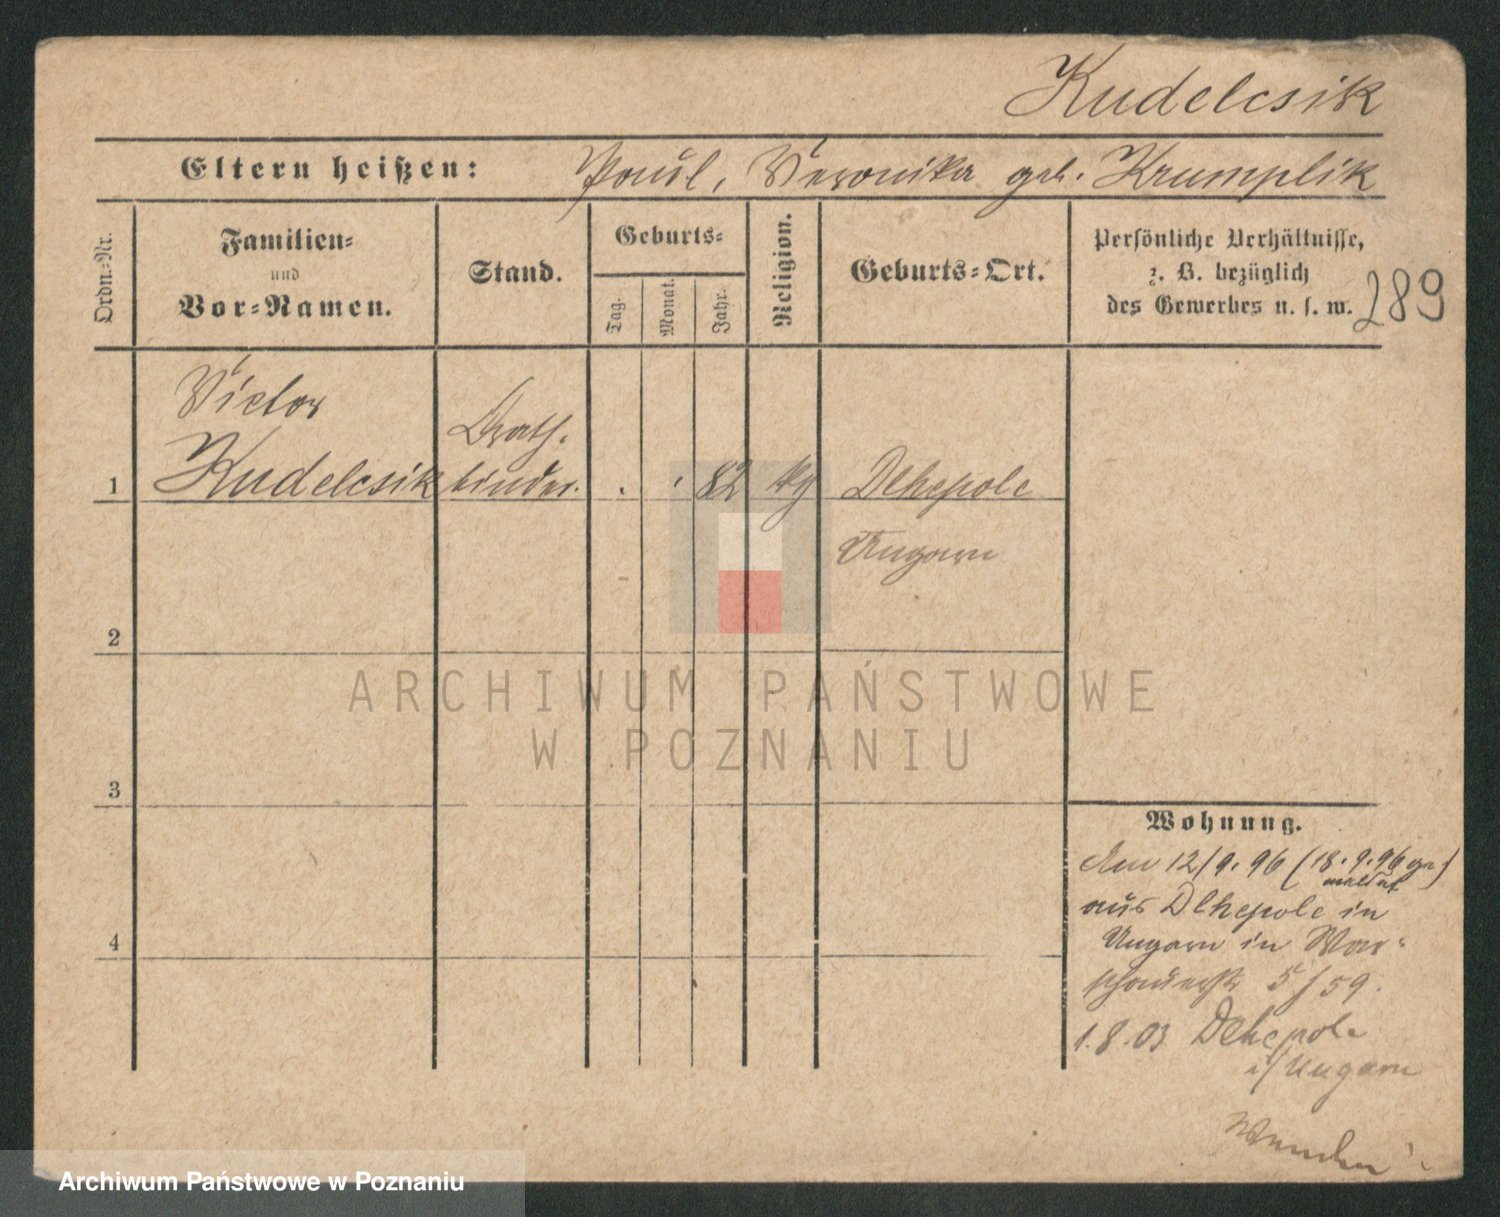 Kudelcsik
Eltern heißen: Paul, Veronika geb. Krumplik
Ordn.-Nr.
Familien-
und
Vor-Namen.
Stand.
Geburts-
Tag.
Monat.
Jahr.
Religion.
Geburts-Ort.
Persönliche Verhältnisse,
z. B. bezüglich
des Gewerbes u. s. w.
289
Victor
Drath-
1 Kudelcsik binder. . . 82 Dlhepole
Ungarn
2
3
4
ARCHIWUM PAŃSTWOWE
W POZNANIU
Wohnung.
Am 12/9.96 (18.9.96 ge-
meldet)
aus Dlhepole in
Ungarn in War-
schauerstr 5/59.
1.8.03 Dlhepole
i/Ungarn
Wenden
Archiwum Państwowe w Poznaniu